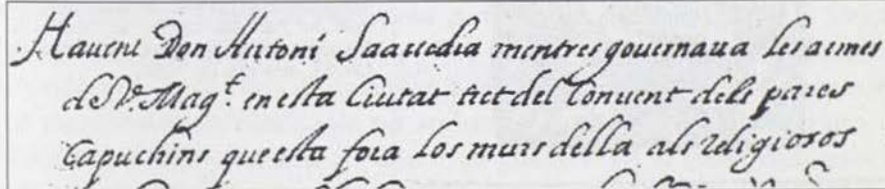 Havent Don Antoni Saavedra mentres gouernaua les armes
de V. Mag.t en esta Ciutat tret del Conuent dels pares
Capuchins que esta fora los murs della als religiosos